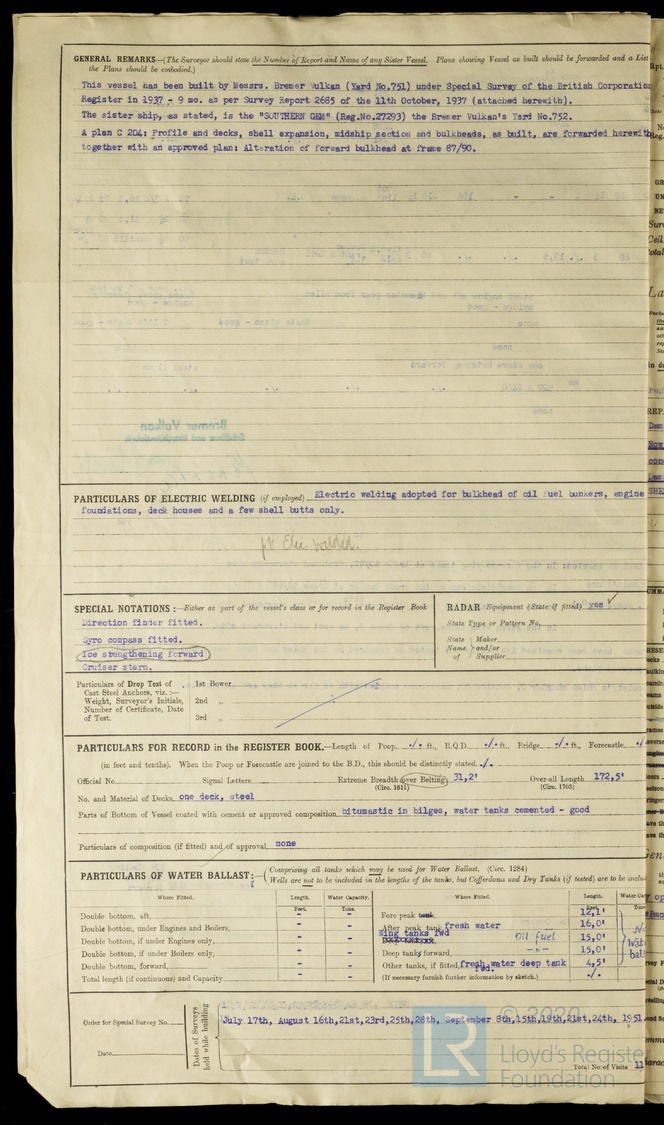 GENERAL REMARKS—(The Surveyor should state the Number of Report and Name of any Sister Vessel. Plans showing Vessel as built should be forwarded and a List
the Plans should be embodied.)
This vessel has been built by Messrs. Bremer Vulkan (Yard No.751) under Special Survey of the British Corporation
Register in 1937 - 9 mo. as per Survey Report 2685 of the 11th October, 1937 (attached herewith).
The sister ship, as stated, is the "SOUTHERN GEM" (Reg.No.27293) the Bremer Vulkan's Yard No.752.
A plan C 204: Profile and decks, shell expansion, midship section and bulkheads, as built, are forwarded herewith
together with an approved plan: Alteration of forward bulkhead at frame 87/90.
Bremer Vulkan
PARTICULARS OF ELECTRIC WELDING (if employed) Electric welding adopted for bulkhead of oil fuel bunkers, engine
foundations, deck houses and a few shell butts only.
pt Elec welded.
SPECIAL NOTATIONS:—Either as part of the vessel's class or for record in the Register Book
Direction finder fitted.
Gyro compass fitted.
Ice strengthening forward
Cruiser stern.
RADAR Equipment (State if fitted) yes ✓
State Type or Pattern No.
State Name of Maker and/or Supplier
Particulars of Drop Test of Cast Steel Anchors, viz. :— Weight, Surveyor's Initials, Number of Certificate, Date of Test.
1st Bower
2nd „
3rd „
PARTICULARS FOR RECORD in the REGISTER BOOK.—Length of Poop ./. ft., R.Q.D. ./. ft., Bridge ./. ft., Forecastle ./
(in feet and tenths). When the Poop or Forecastle are joined to the B.D., this should be distinctly stated ./.
Official No. Signal Letters Extreme Breadth over Belting 31,2' Over-all Length 172,5'
(Circ. 1611) (Circ. 1703)
No. and Material of Decks one deck, steel
Parts of Bottom of Vessel coated with cement or approved composition bitumastic in bilges, water tanks cemented - good
Particulars of composition (if fitted) and of approval none
PARTICULARS OF WATER BALLAST:— Comprising all tanks which may be used for Water Ballast. (Circ. 1284)
Wells are not to be included in the lengths of the tanks, but Cofferdams and Dry Tanks (if tested) are to be
Where Fitted. Length. Water Capacity. Where Fitted. Length.
Feet. Tons. Feet.
Double bottom, aft, - - Fore peak tank 12,1'
Double bottom, under Engines and Boilers, - - After peak tank, fresh water 16,0'
Double bottom, if under Engines only, - - Wing tanks fwd oil fuel 15,0'
Double bottom, if under Boilers only, - - Deep tanks forward, -"- 15,0'
Double bottom, forward, - - Other tanks, if fitted, fresh water deep tank fwd. 4,5'
Total length (if continuous) and Capacity - (If necessary furnish further information by sketch.) ./.
Order for Special Survey No.
Date
Dates of Surveys held while building
July 17th, August 16th,21st,23rd,25th,28th, September 8th,15th,19th,21st,24th, 1951
Total No. of Visits 11
© 2020
LR
Lloyd's Register
Foundation